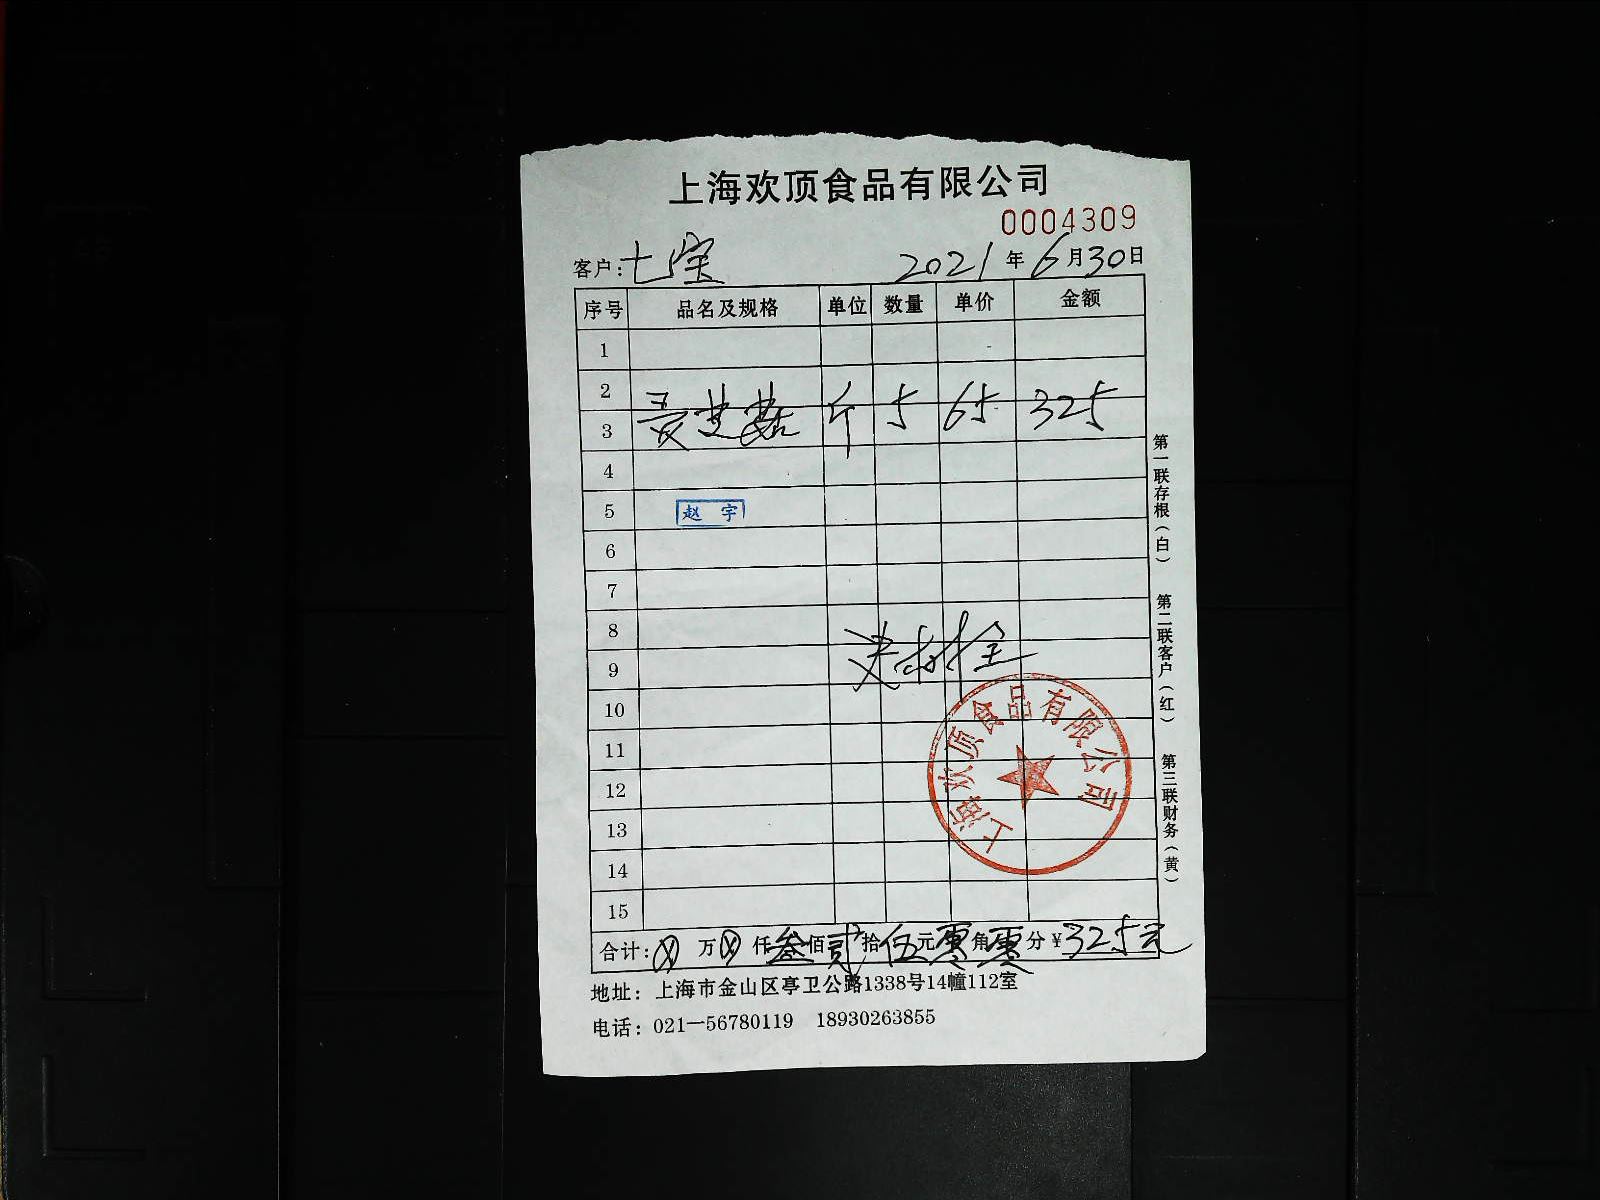 上海欢顶食品有限公司
0004309
客户:七宝 2021年6月30日
序号 品名及规格 单位 数量 单价 金额
1
2
3 灵芝菇 斤 5 65 325
4
5 赵宇
6
7
8
9
10
11
12
13
14
15
合计:⊗万⊗仟叁佰贰拾伍元零角零分¥325元
地址：上海市金山区亭卫公路1338号14幢112室
电话：021—56780119 18930263855
第一联存根（白） 第二联客户（红） 第三联财务（黄）
上海欢顶食品有限公司